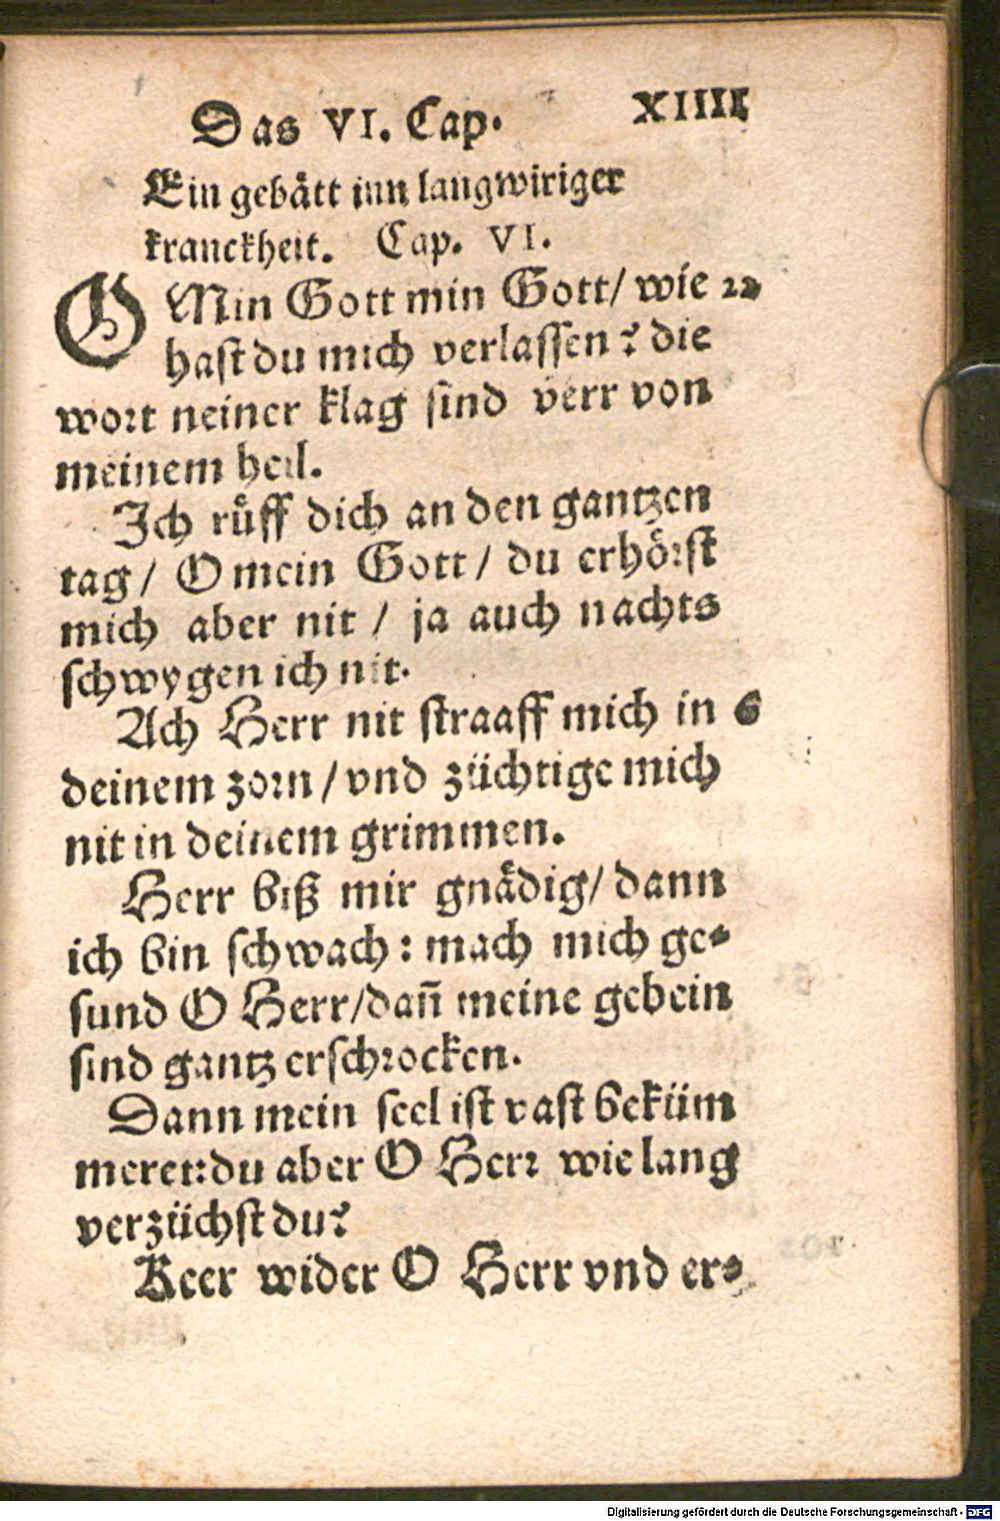 Das VI. Cap. XIIII
Ein gebått inn langwiriger
kranckheit. Cap. VI.
O Min Gott min Gott/ wie 22
hast du mich verlassen? die
wort neiner klag sind verr von
meinem heil.
Ich růff dich an den gantzen
tag/ O mein Gott/ du erhörst
mich aber nit/ ja auch nachts
schwygen ich nit.
Ach Herr nit straaff mich in 6
deinem zorn/ vnd züchtige mich
nit in deinem grimmen.
Herr biß mir gnädig/ dann
ich bin schwach: mach mich ge-
sund O Herr/ dañ meine gebein
sind gantz erschrocken.
Dann mein seel ist vast beküm
meret: du aber O Herr wie lang
verzüchst du?
Keer wider O Herr vnd er-
Digitalisierung gefördert durch die Deutsche Forschungsgemeinschaft - DFG